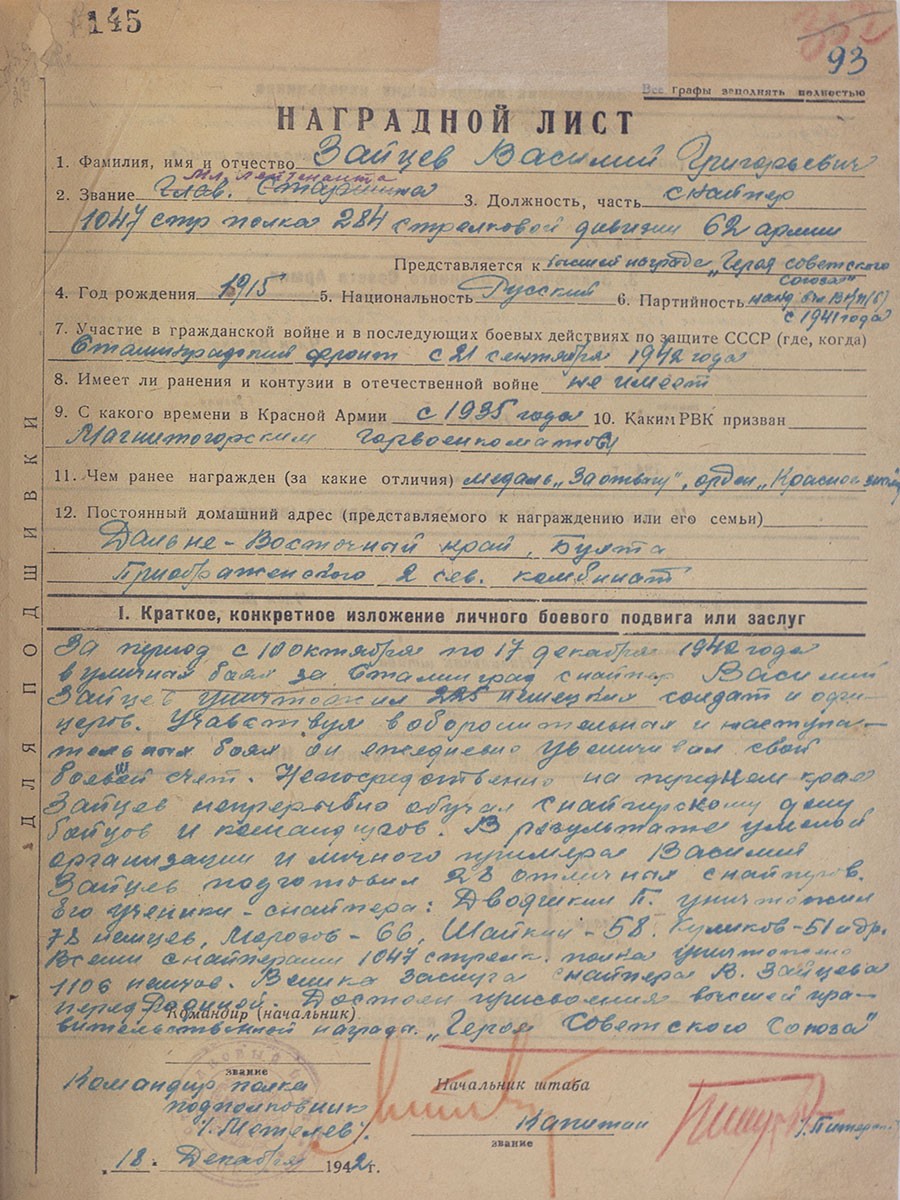 145
93
Все графы заполнять полностью
НАГРАДНОЙ ЛИСТ
1. Фамилия, имя и отчество Зайцев Василий Григорьевич
Мл. лейтенанта
2. Звание Глав. Старшина 3. Должность, часть снайпер
1047 стр полка 284 стрелковой дивизии 62 армии
Представляется к высшей награде „Героя советского
союза"
4. Год рождения 1915 5. Национальность Русский 6. Партийность канд. ВКП(б)
с 1941 года
7. Участие в гражданской войне и в последующих боевых действиях по защите СССР (где, когда)
Сталинградский фронт с 21 сентября 1942 года
8. Имеет ли ранения и контузии в отечественной войне не имеет
9. С какого времени в Красной Армии с 1935 года 10. Каким РВК призван
Магнитогорским горвоенкоматом
11. Чем ранее награжден (за какие отличия) медаль „За отвагу", орден „Красное
12. Постоянный домашний адрес (представляемого к награждению или его семьи)
Дальне-Восточный край, Бухта
Приображенского 2 сев. комбинат
I. Краткое, конкретное изложение личного боевого подвига или заслуг
За период с 10 октября по 17 декабря 1942 года
в уличных боях за Сталинград снайпер Василий
Зайцев уничтожил 225 немецких солдат и офи-
церов. Учавствуя в оборонительных и наступа-
тельных боях он ежедневно увеличивал свой
боевой счет. Непосредственно на переднем крае
Зайцев непрерывно обучал снайперскому делу
бойцов и командиров. В результате умелой
организации и личного примера Василий
Зайцев подготовил 28 отличных снайперов.
Его ученики-снайпера: Двояшкин П. уничтожил
78 немцев, Морозов - 66, Шайкин - 58. Куликов - 51 и др.
Всеми снайперами 1047 стрелк. полка уничтожено
1106 немцев. Велика заслуга снайпера В. Зайцева
перед Родиной. Достоин присвоения высшей пра-
Командир (начальник)
вительственной награды „Героя Советского Союза"
звание
Командир полка
Начальник штаба
подполковник
/. Метелев/.
Капитан
звание
18. Декабря 1942 г.
ДЛЯ ПОДШИВКИ